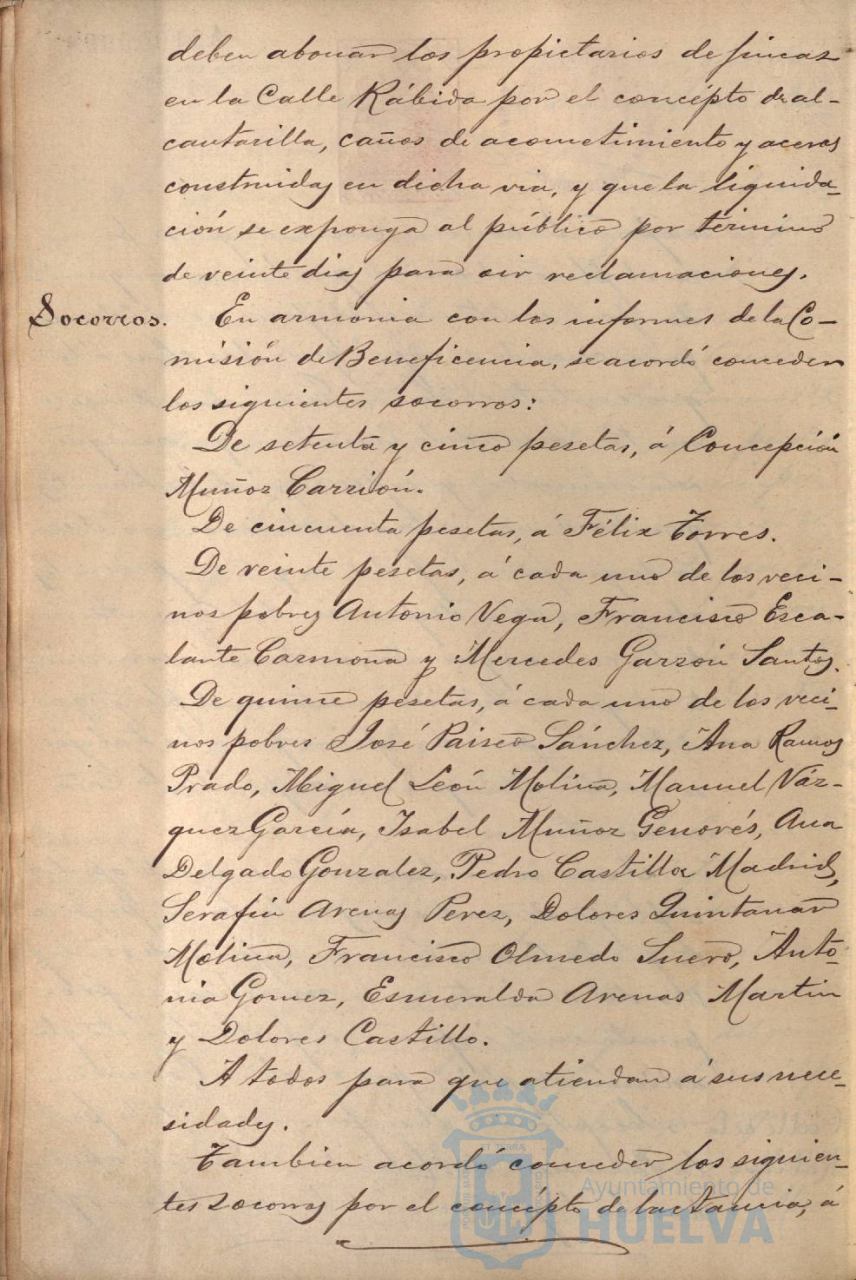 deben abonar los propietarios de fincas
en la Calle Rábida por el concépto de al-
cantarilla, caños de acometimiento y aceras
construidas en dicha via, y que la liquida-
ción se exponga al público por término
de veinte dias para oir reclamaciones.
Socorros. En armonia con los informes de la Co-
misión de Beneficencia, se acordó conceder
los siguientes socorros:
De setenta y cinco pesetas, á Concepción
Muñoz Carrión.
De cincuenta pesetas, á Félix Torres.
De veinte pesetas, á cada uno de los veci-
nos pobres Antonio Vega, Francisco Esca-
lante Carmona y Mercedes Garzón Santos.
De quince pesetas, á cada uno de los veci-
nos pobres José Sánchez, Ana Ramos
Prado, Miguel León Molina, Manuel Váz-
quez García, Isabel Muñoz Genovés, Ana
Delgado Gonzalez, Pedro Castilla Madrid,
Serafin Arenas Perez, Dolores Quintanar
Molina, Francisco Olmedo Suero, Anto-
nia Gomez, Esmeralda Arenas Martin
y Dolores Castillo.
A todos para que atiendan á sus nece-
sidades.
Tambien acordó conceder los siguien-
tes socorros por el concépto de lactancia, á
Ayuntamiento de
HUELVA